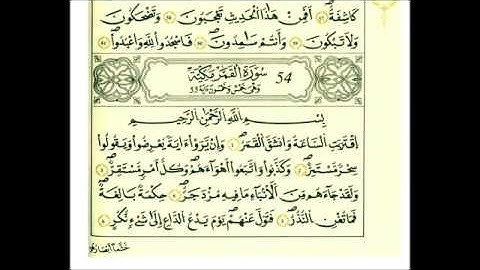 كَاشِفَةٌ ۝ أَفَمِنْ هَٰذَا الْحَدِيثِ تَعْجَبُونَ ۝ وَتَضْحَكُونَ
وَلَا تَبْكُونَ ۝ وَأَنتُمْ سَامِدُونَ ۝ فَاسْجُدُوا لِلَّهِ وَاعْبُدُوا ۝
سُورَةُ الْقَمَرِ مَكِّيَّةٌ 54
بِسْمِ اللَّهِ الرَّحْمَٰنِ الرَّحِيمِ
اقْتَرَبَتِ السَّاعَةُ وَانشَقَّ الْقَمَرُ ۝ وَإِن يَرَوْا ءَايَةً يُعْرِضُوا وَيَقُولُوا
سِحْرٌ مُّسْتَمِرٌّ ۝ وَكَذَّبُوا وَاتَّبَعُوا أَهْوَاءَهُمْ وَكُلُّ أَمْرٍ مُّسْتَقِرٌّ ۝
وَلَقَدْ جَاءَهُم مِّنَ الْأَنبَاءِ مَا فِيهِ مُزْدَجَرٌ ۝ حِكْمَةٌ بَالِغَةٌ
فَمَا تُغْنِ النُّذُرُ ۝ فَتَوَلَّ عَنْهُمْ يَوْمَ يَدْعُ الدَّاعِ إِلَىٰ شَيْءٍ نُّكُرٍ ۝